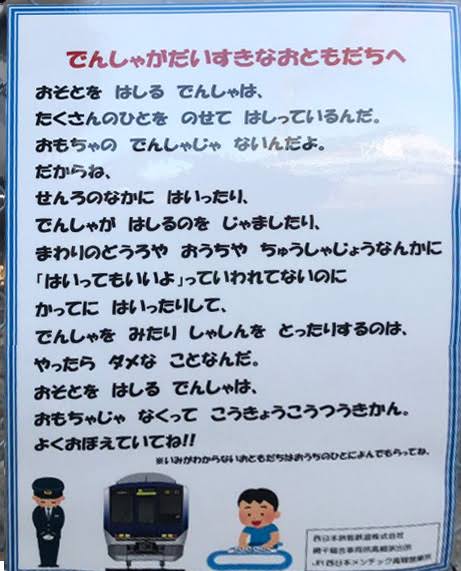 でんしゃがだいすきなおともだちへ
おそとを はしる でんしゃは、
たくさんのひとを のせて はしっているんだ。
おもちゃの でんしゃじゃ ないんだよ。
だからね、
せんろのなかに はいったり、
でんしゃが はしるのを じゃましたり、
まわりのどうろや おうちや ちゅうしゃじょうなんかに
「はいってもいいよ」っていわれてないのに
かってに はいったりして、
でんしゃを みたり しゃしんを とったりするのは、
やったら ダメな ことなんだ。
おそとを はしる でんしゃは、
おもちゃじゃ なくって こうきょうこうつうきかん。
よくおぼえていてね!!
※いみがわからないおともだちはおうちのひとによんでもらってね。
西日本旅客鉄道株式会社
網干総合車両所高槻派出所
JR西日本メンテック高槻営業所